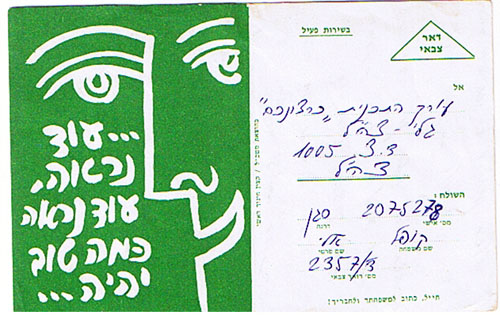 ...עוד
נראה,
עוד נראה
כמה טוב
יהיה...
בשירות פעיל
דאר
צבאי
אל
עורך התכנית "כרצונכם"
גל"י - צה"ל
ד.צ 1005
צה"ל
השולח:
2075278 סגן
מס׳ אישי
דרגה
קופל
שם משפחה
שם פרטי
2357/צ
מס׳ דואר צבאי
חייל, כתוב למשפחתך ולחבריך!